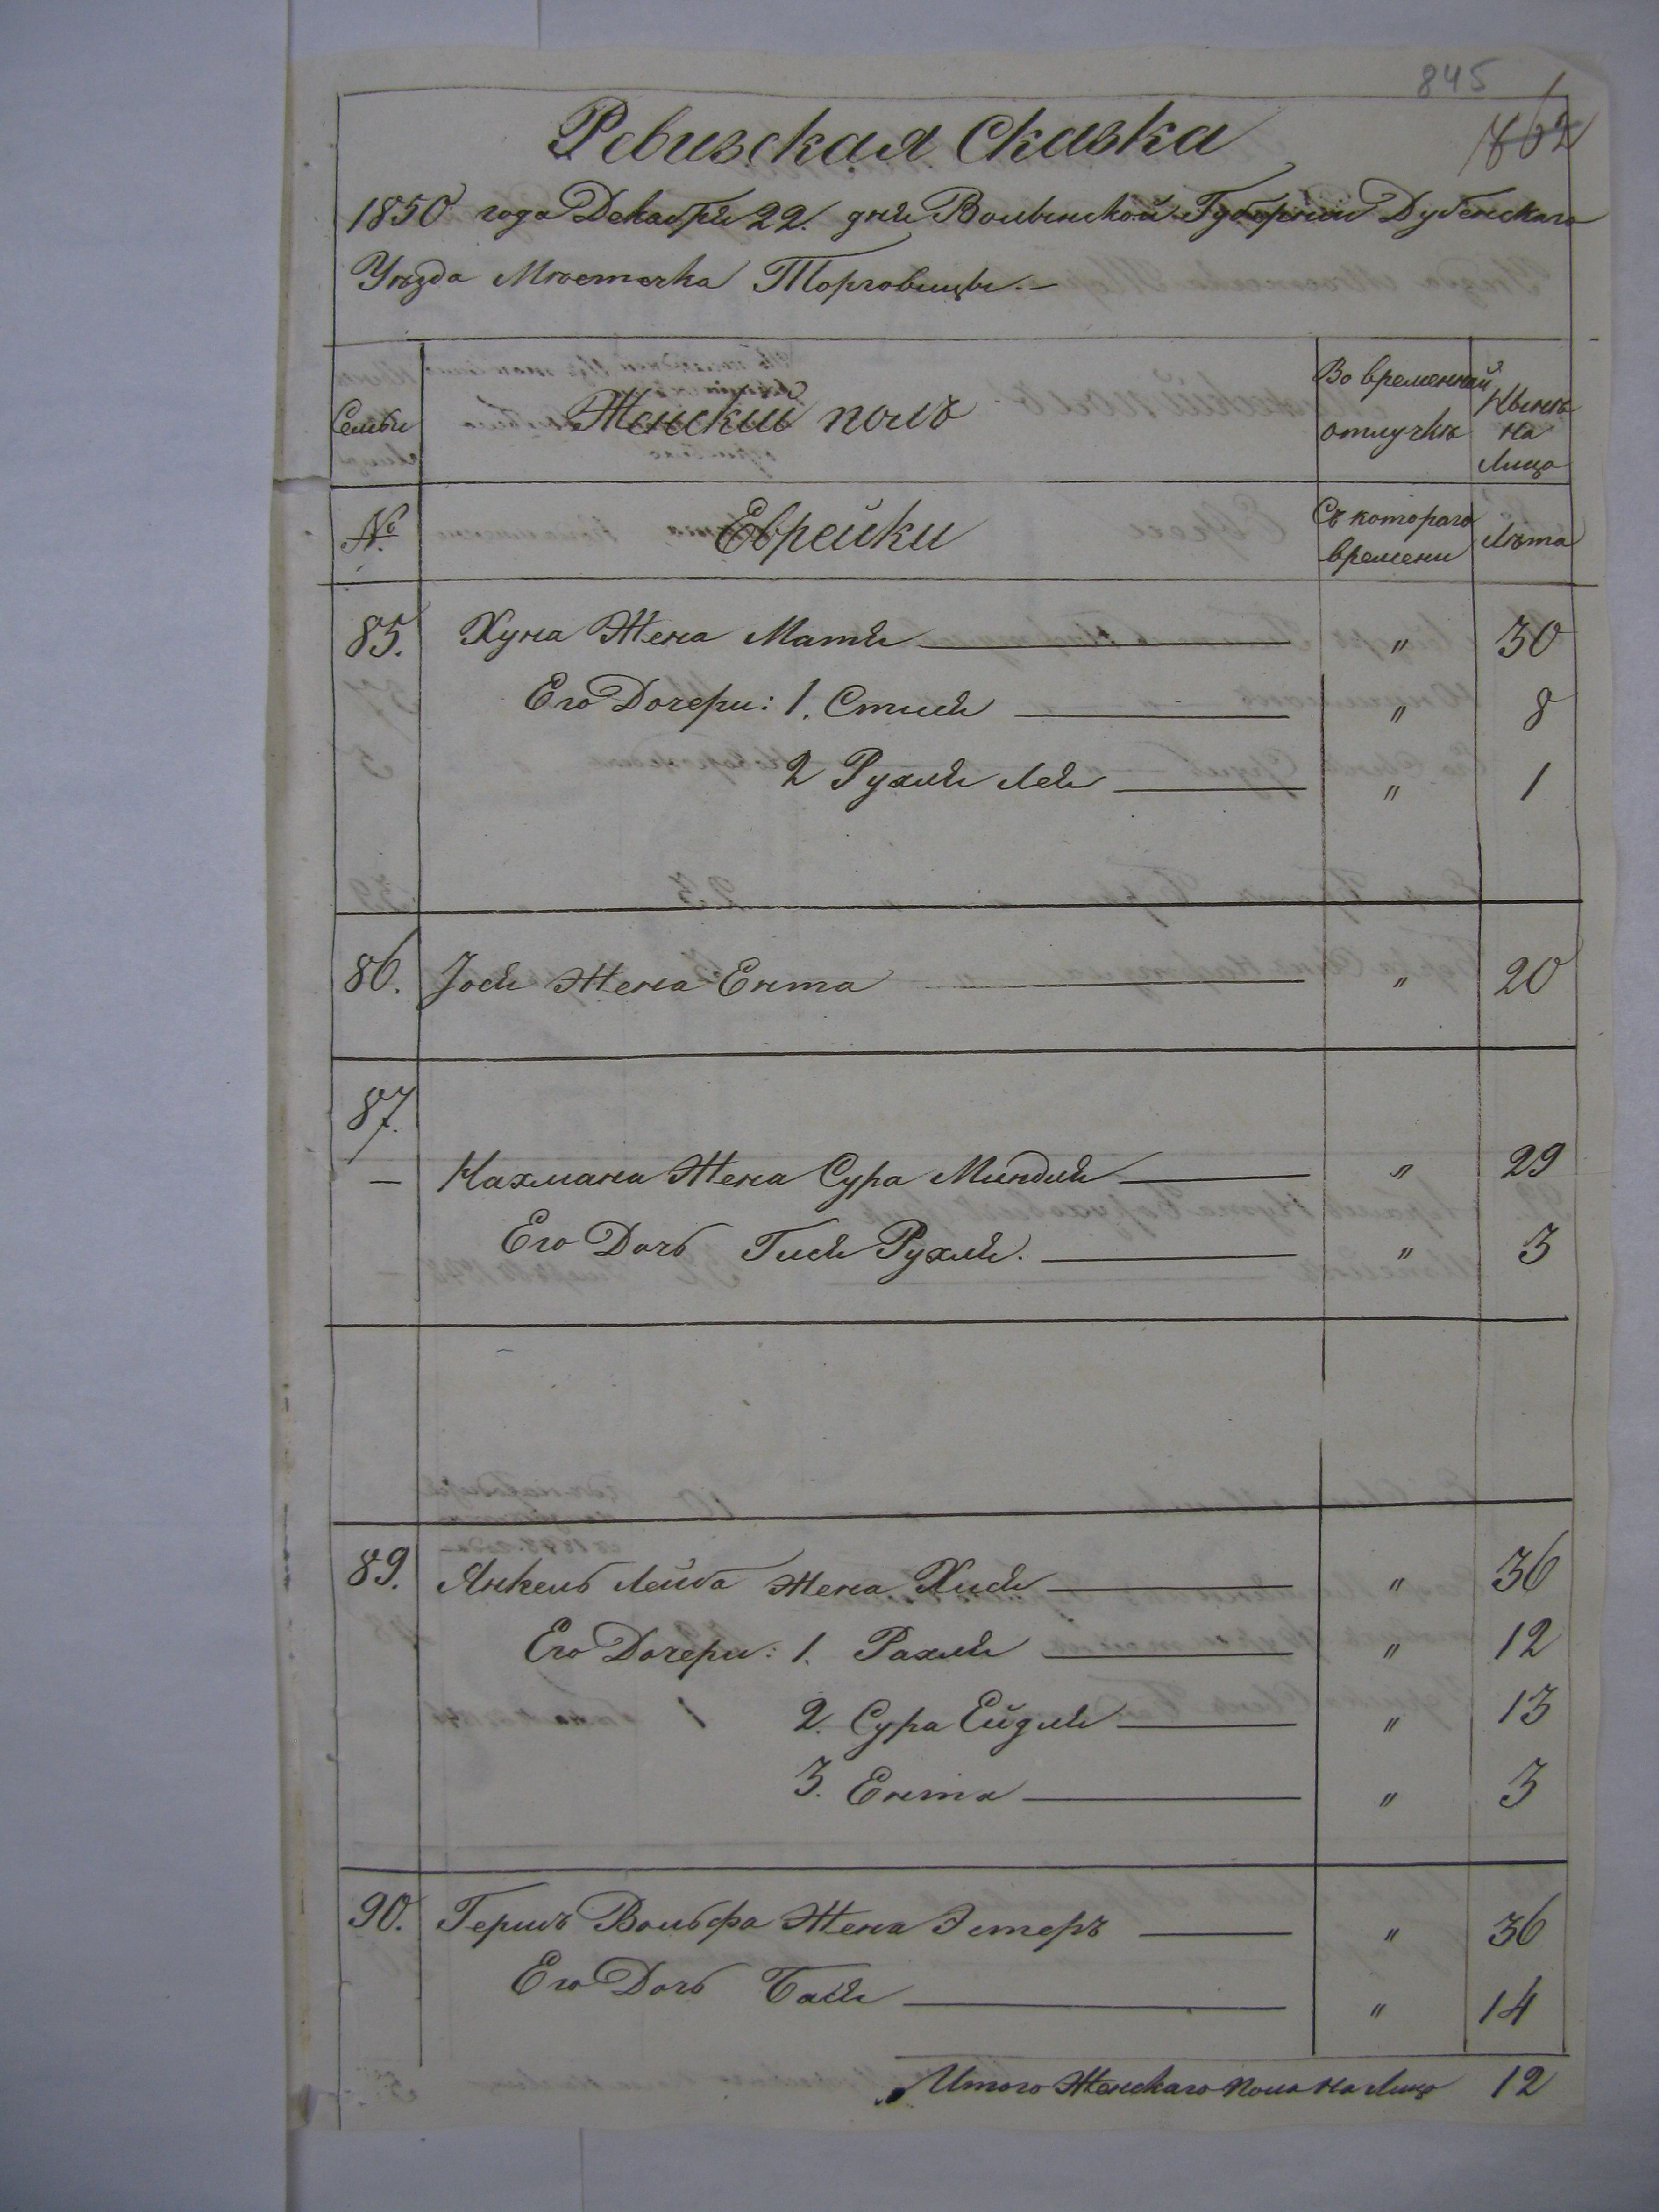 845
Ревизская Сказка
1850 года Декабря 22. дня Волынской Губернии Дубенскаго
Уѣзда Мѣстечка Торговицы.—
Семьи
Женский полъ
Во временной
отлучкѣ
Нынѣ
на
Лицо
№
Еврейки
Съ котораго
времени
Лѣта
85. Хуна Жена Матля " 30
Его Дочери: 1. Стися " 8
2 Рухля Лея " 1
86. Јося Жена Ента " 20
87.
— Нахмана Жена Сура Миндля " 29
Его Дочь Гися Рухля. " 3
89. Янкель Лейба жена Хися " 36
Его Дочери: 1. Рахля " 12
2. Сура Ейдля " 13
3. Ента " 3
90. Гершъ Вольфа Жена Эстеръ " 36
Его Дочь Бася " 14
Итого Женскаго пола на Лицо 12